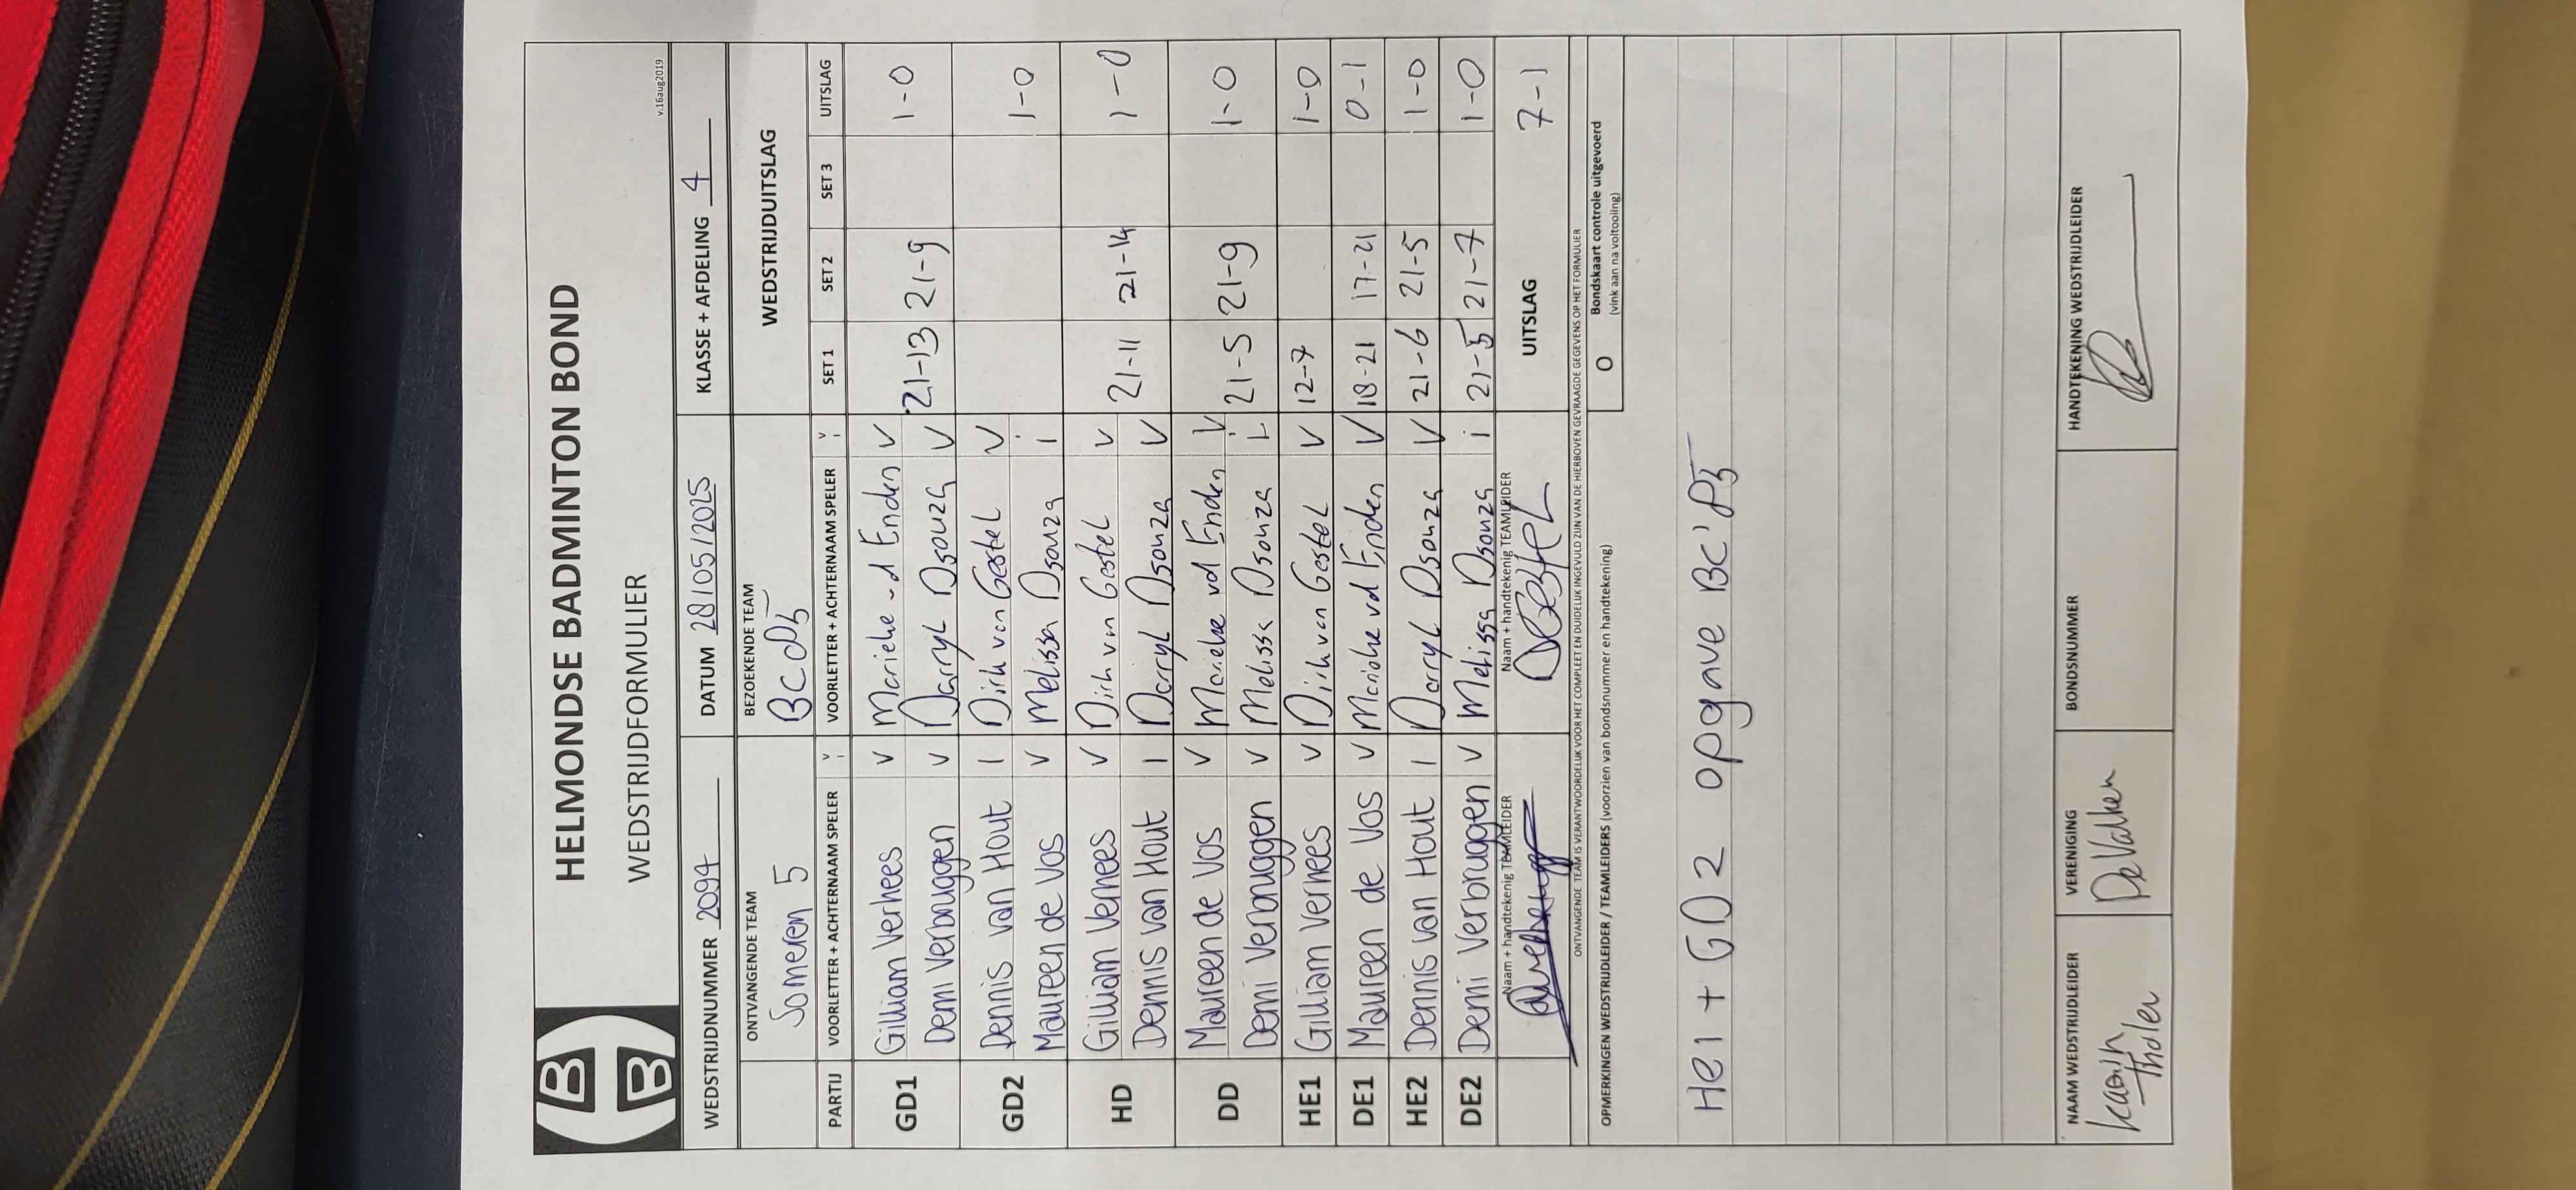 HELMONDSE BADMINTON BOND
WEDSTRIJDFORMULIER
v.16aug2019
B B
WEDSTRIJDNUMMER 2094 DATUM 28/05/2025 KLASSE + AFDELING 4
ONTVANGENDE TEAM BEZOEKENDE TEAM WEDSTRIJDUITSLAG
Someren 5 BC'85
PARTIJ VOORLETTER + ACHTERNAAM SPELER V I VOORLETTER + ACHTERNAAM SPELER V I SET 1 SET 2 SET 3 UITSLAG
GD1 Gilliam Verhees V Marieke vd Enden V 21-13 21-9 1-0
Demi Verbruggen V Darryl Dsouza V
GD2 Dennis van Hout I Dirk van Gestel V 1-0
Maureen de Vos V Melissa Dsouza i
HD Gilliam Verhees V Dirk van Gestel V 21-11 21-14 1-0
Dennis van Hout I Darryl Dsouza V
DD Maureen de Vos V Marieke vd Enden V 21-5 21-9 1-0
Demi Verbruggen V Melissa Dsouza i
HE1 Gilliam Verhees V Dirk van Gestel V 12-7 1-0
DE1 Maureen de Vos V Marieke vd Enden V 18-21 17-21 0-1
HE2 Dennis van Hout I Darryl Dsouza V 21-6 21-5 1-0
DE2 Demi Verbruggen V Melissa Dsouza i 21-5 21-7 1-0
Naam + handtekenig TEAMLEIDER Naam + handtekenig TEAMLEIDER UITSLAG 7-1
ONTVANGENDE TEAM IS VERANTWOORDELIJK VOOR HET COMPLEET EN DUIDELIJK INGEVULD ZIJN VAN DE HIERBOVEN GEVRAAGDE GEGEVENS OP HET FORMULIER
OPMERKINGEN WEDSTRIJDLEIDER / TEAMLEIDERS (voorzien van bondsnummer en handtekening) O Bondskaart controle uitgevoerd
(vink aan na voltooiing)
HE1 + GD2 opgave BC'85
NAAM WEDSTRIJDLEIDER VERENIGING BONDSNUMMER HANDTEKENING WEDSTRIJDLEIDER
Karin De Valken
Tholen